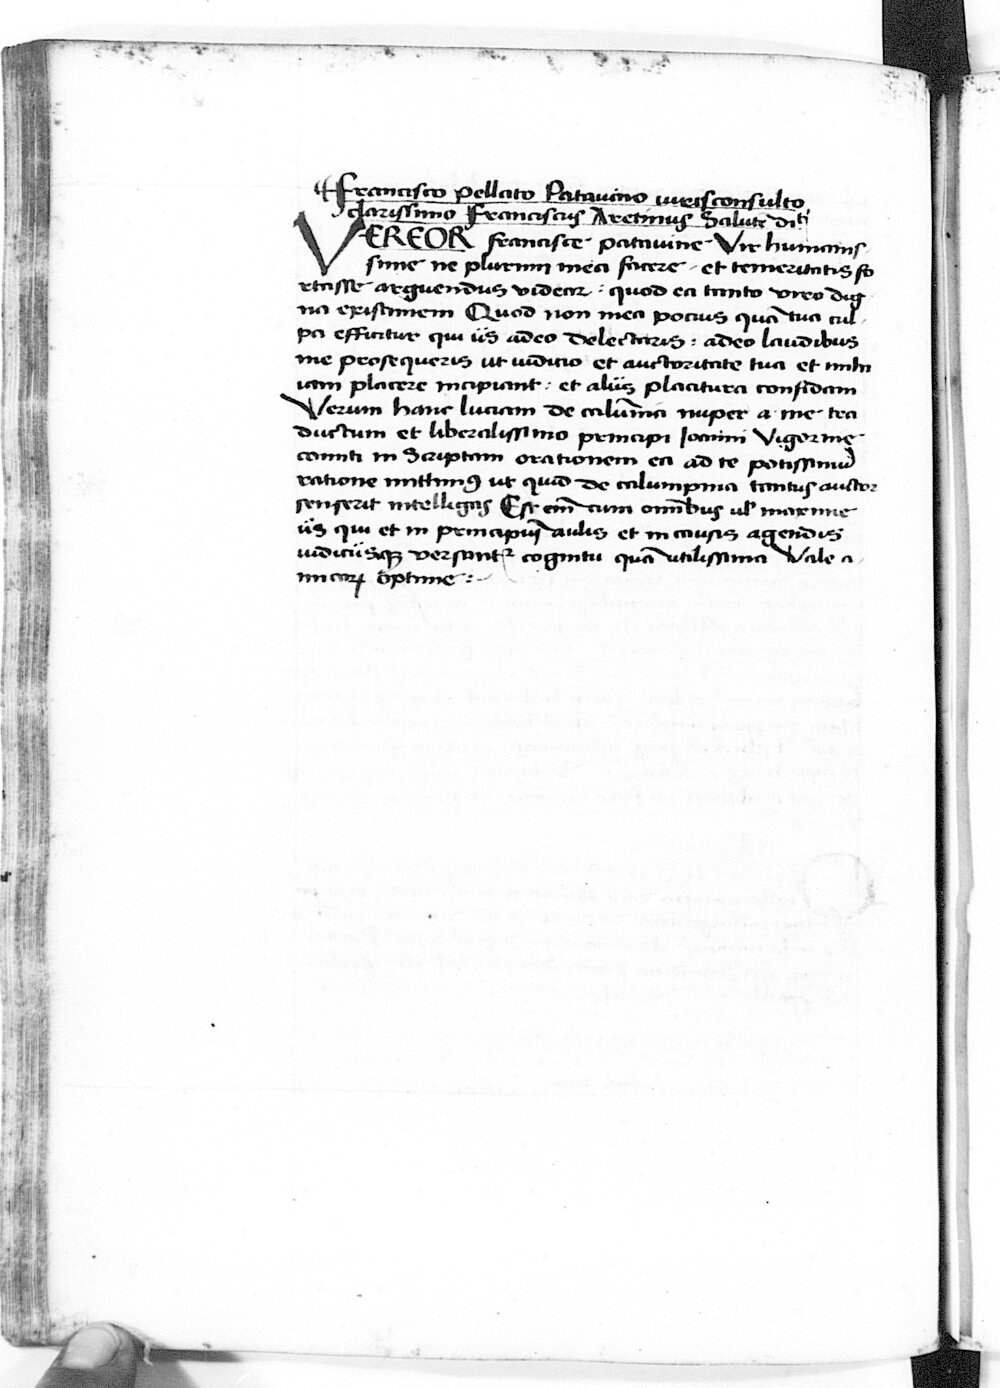 Francisco pellato Patavino iurisconsulto
clarissimo Franciscus Aretinus Salutē diċ
VEREOR francisce patavine Vir humanis
sime ne plurimi mea facere et temeritatis fo
rtasse arguendus videar : quod ea tanto viro dig
na existimem Quod non mea pocius quā tua cul
pa efficitur qui iis adeo delectaris : adeo laudibus
me prosequeris ut iudicio et auctoritate tua et mihi
iam placere incipiant : et aliis placitura confidam
Verum hanc luciam de calūmnia nuper a me tra
ductum et liberalissimo principi Joanni Vigornie
comiti in Scriptam orationem ea ad te potissimū
ratione mittimꝰ ut quid de calumpnia tantus auctor
senserit intelligas Est em̄ cum omībus ul̓ maxime
iis qui et in principuȷ̄ aulis et in causis agendis
iudiciisqꝫ versantᷣ cognitu quā utilissima Vale a
micoꝝ optime :